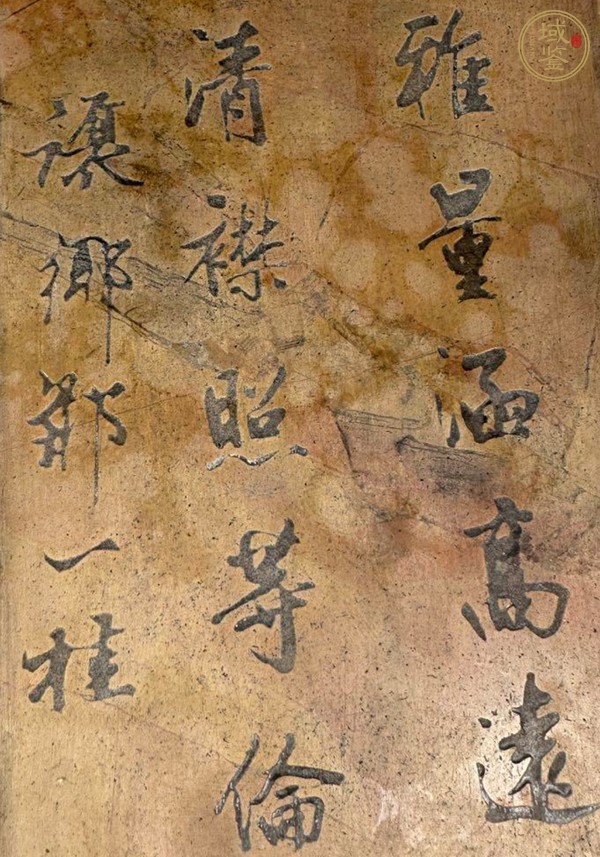 雅量涵高遠
清襟照等倫
讓鄉鄒一桂
域鉴